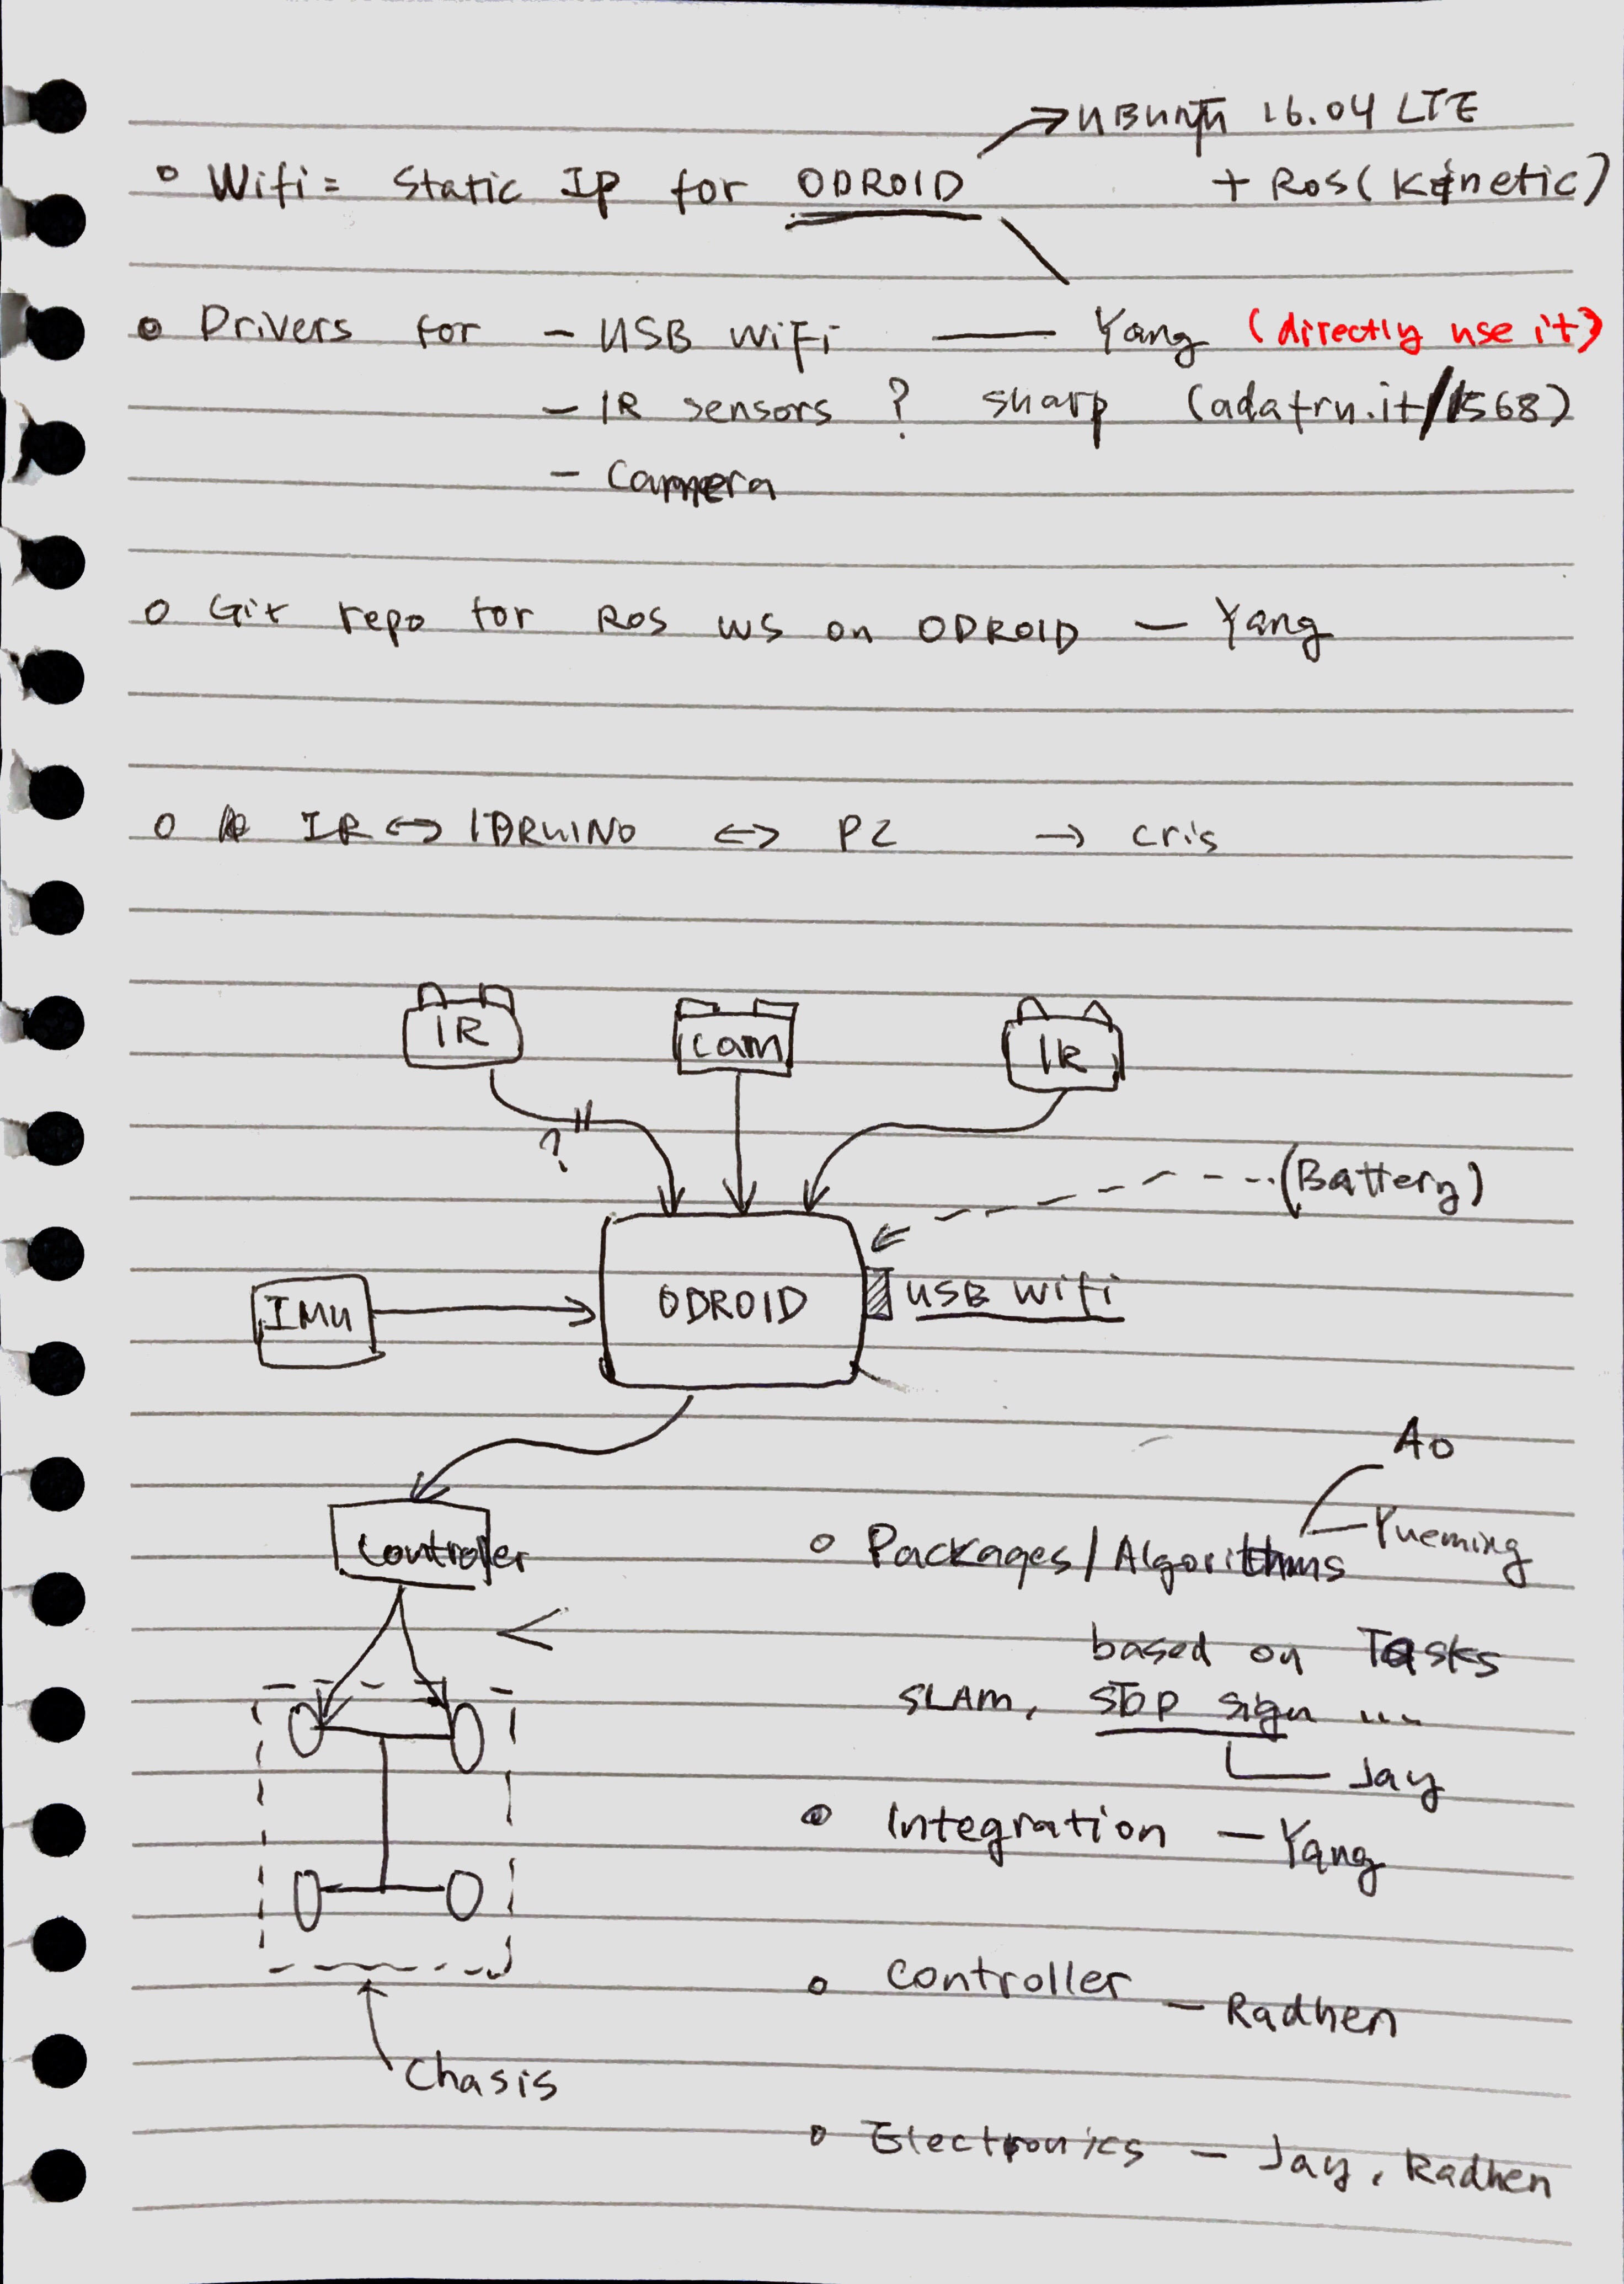 → UBUNTU 16.04 LTE
o Wifi= Static IP for ODROID + ROS (Kinetic)
o Drivers for - USB WiFi — Yang (directly use it)
- IR sensors ? sharp (adafru.it/1568)
- Camera
o Git repo for ROS WS on ODROID — Yang
o IR ↔ ↔ PC → cris
IR cam IR
?
(Battery)
IMU ODROID USB Wifi
Ao
Controller o Packages/Algorithms — Yueming
based on Tasks
SLAM, stop sign ...
Jay
o Integration — Yang
o Controller — Radhen
Chasis
o Electronics — Jay, Radhen